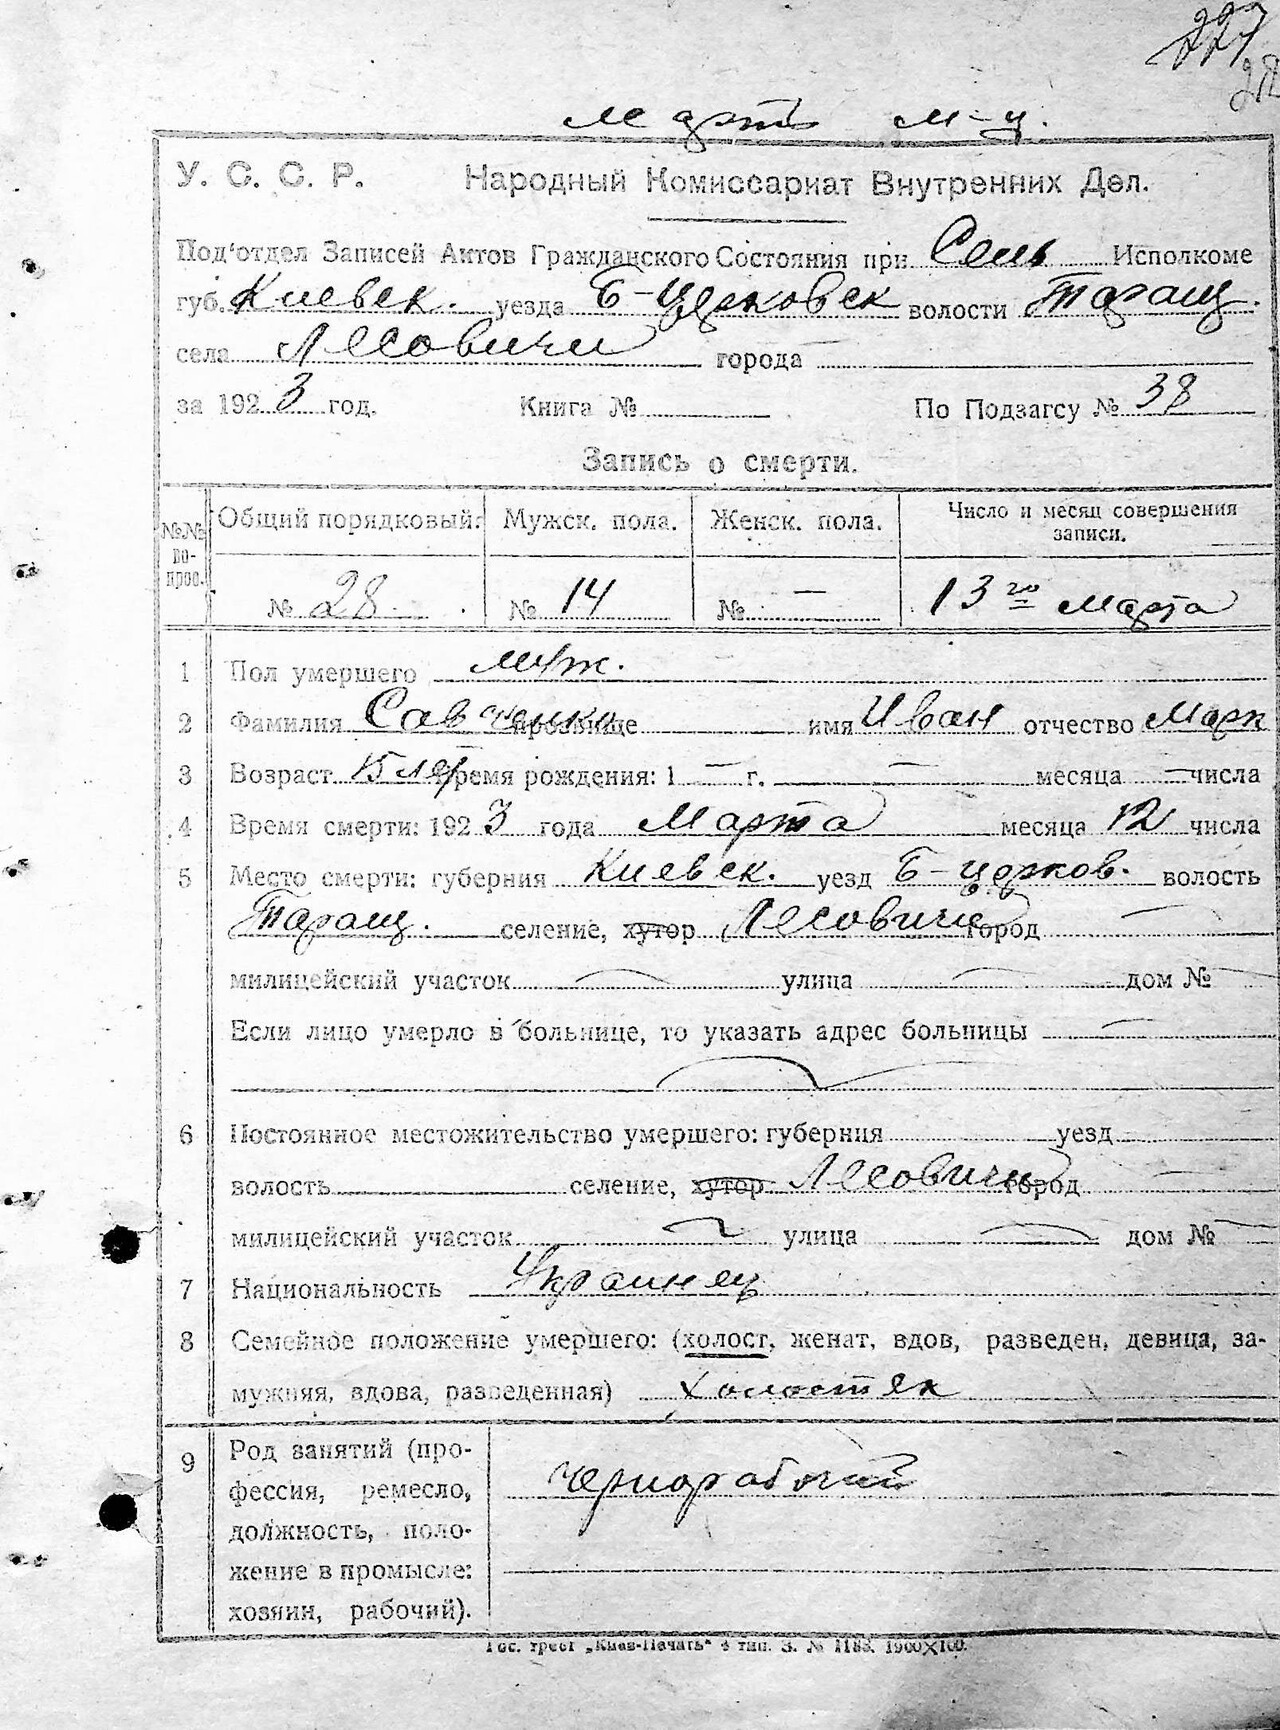 227
28
Март м-ц.
У. С. С. Р. Народный Комиссариат Внутренних Дел.
Под'отдел Записей Актов Гражданского Состояния при Сель Исполкоме
губ. Киевск. уезда Б-Церковск волости Таращ.
села Лесовичи города
за 1923 год. Книга № По Подзагсу № 38
Запись о смерти.
№№ во-прос. Общий порядковый: Мужск. пола. Женск. пола. Число и месяц совершения записи.
№ 28 № 14 № — 13го Марта
1 Пол умершего муж.
2 Фамилия Савченко прозвище имя Иван отчество Марк
3 Возраст 15 лет Время рождения: 1 — г. — месяца — числа
4 Время смерти: 1923 года Марта месяца 12 числа
5 Место смерти: губерния Киевск. уезд Б-Церков. волость
Таращ. селение, хутор Лесовичи город —
милицейский участок — улица — дом № —
Если лицо умерло в больнице, то указать адрес больницы —
6 Постоянное местожительство умершего: губерния уезд
волость селение, хутор Лесовичи город —
милицейский участок — улица — дом № —
7 Национальность Украинец
8 Семейное положение умершего: (холост, женат, вдов, разведен, девица, за-
мужняя, вдова, разведенная) холостяк
9 Род занятий (про-
фессия, ремесло,
должность, поло-
жение в промысле:
хозяин, рабочий).
чернорабочий
Гос. трест „Киев-Печать" 4 тип. З. № 1183. 1900×100.